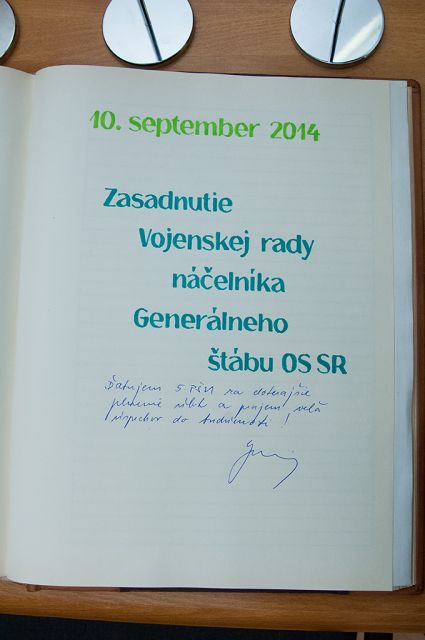 10. september 2014
Zasadnutie
Vojenskej rady
náčelníka
Generálneho
štábu OS SR
Ďakujem 5. PŠU za doterajšie
plnenie úloh a prajem veľa
úspechov do budúcnosti!